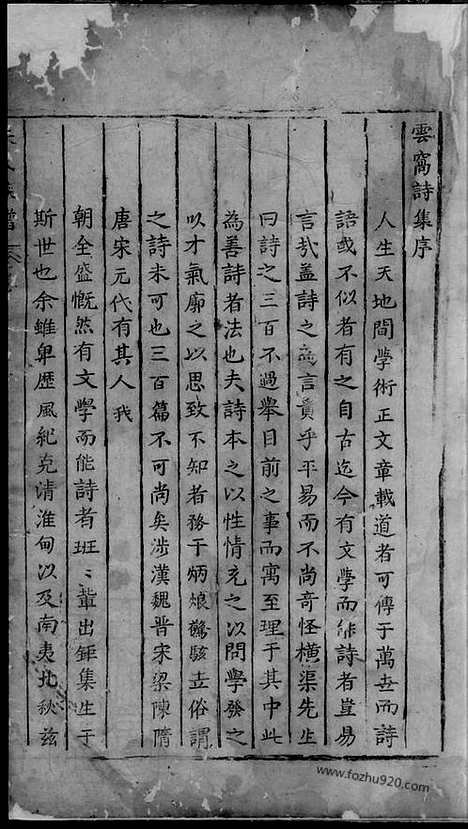 雲窩詩集序
人生天地間學術正文章載道者可傳于萬世而詩
語或不似者有之自古迄今有文學而能詩者豈易
言哉盖詩之為言貴乎平易而不尚奇怪橫渠先生
曰詩之三百不過舉目前之事而寓至理于其中此
為善詩者法也夫詩本之以性情充之以問學發之
以才氣廓之以思致不知者務于炳烺驚駭立俗謂
之詩未可也三百篇不可尚矣涉漢魏晋宋梁陳隋
唐宋元代有其人我
朝全盛慨然有文學而能詩者班〻輩出鉦集生于
斯世也余雖卑歷風紀克清淮甸以及南夷北秋兹
氏族譜
www.fozhu920.com